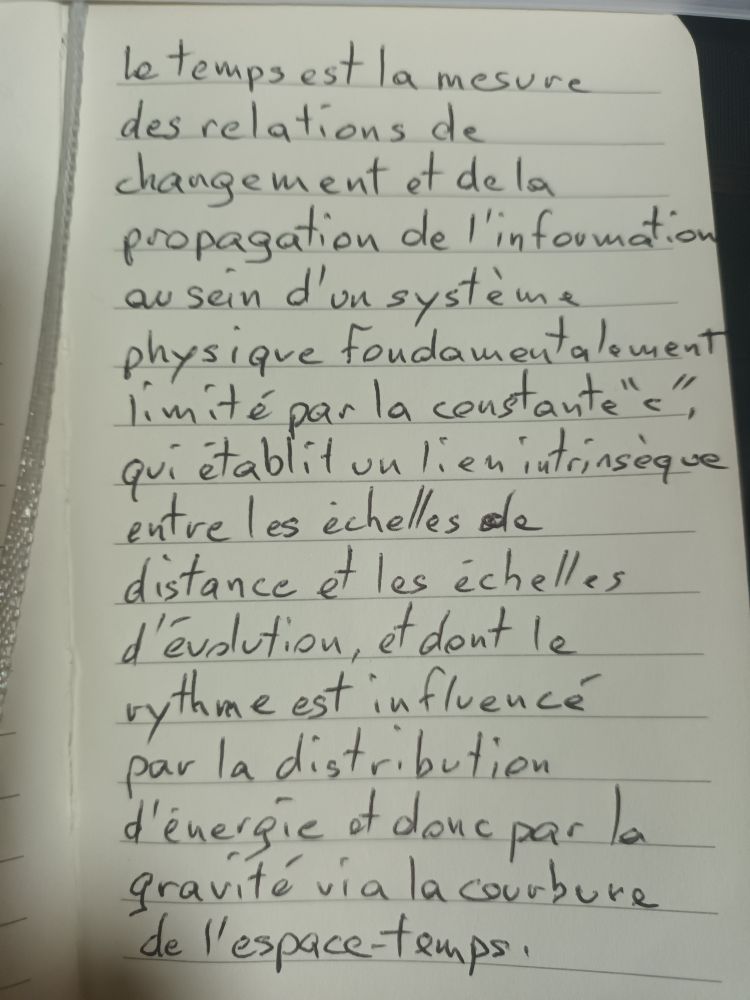 le temps est la mesure
des relations de
changement et de la
propagation de l'information
au sein d'un système
physique fondamentalement
limité par la constante "c",
qui établit un lien intrinsèque
entre les échelles de
distance et les échelles
d'évolution, et dont le
rythme est influencé
par la distribution
d'énergie et donc par la
gravité via la courbure
de l'espace-temps.